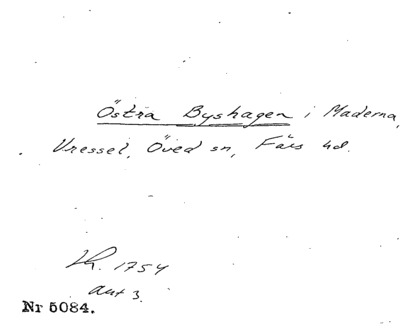 Östra Byshagen i Maderna,
Vressel, Öved sn, Färs hd.
Lh. 1754
akt 3.
Nr 5084.